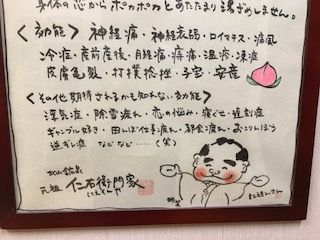 身体の芯からポカポカとあたたまり湯ざめしません。
<効能> 神経痛・神経衰弱・ロイマチス・痛風
冷症・産前産後・月経痛・疼痛・湿疹・凍瘡
皮膚亀裂・打撲捻挫・子宮・安産
<その他期待されるかも知れない効能>
浮気症・除雪疲れ・恋の悩み・寝ぐせ・遅刻症
ギャンブル好き・田んぼ仕事疲れ・都会疲れ・おこりんぼう
逆ギレ症 などなど……(笑)
元祖 仁右衛門家